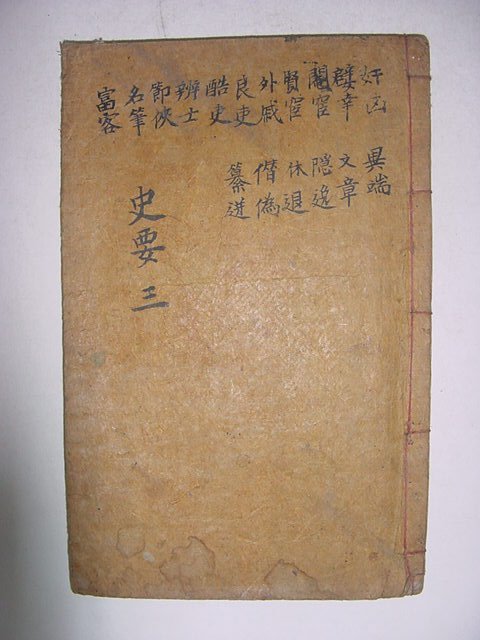 奸凶
嬖幸
閹宦
賢宦
外戚
良吏
酷吏
辨士
節俠
名筆
富客
異端
文章
隱逸
休退
僭偽
纂逆
史要 三